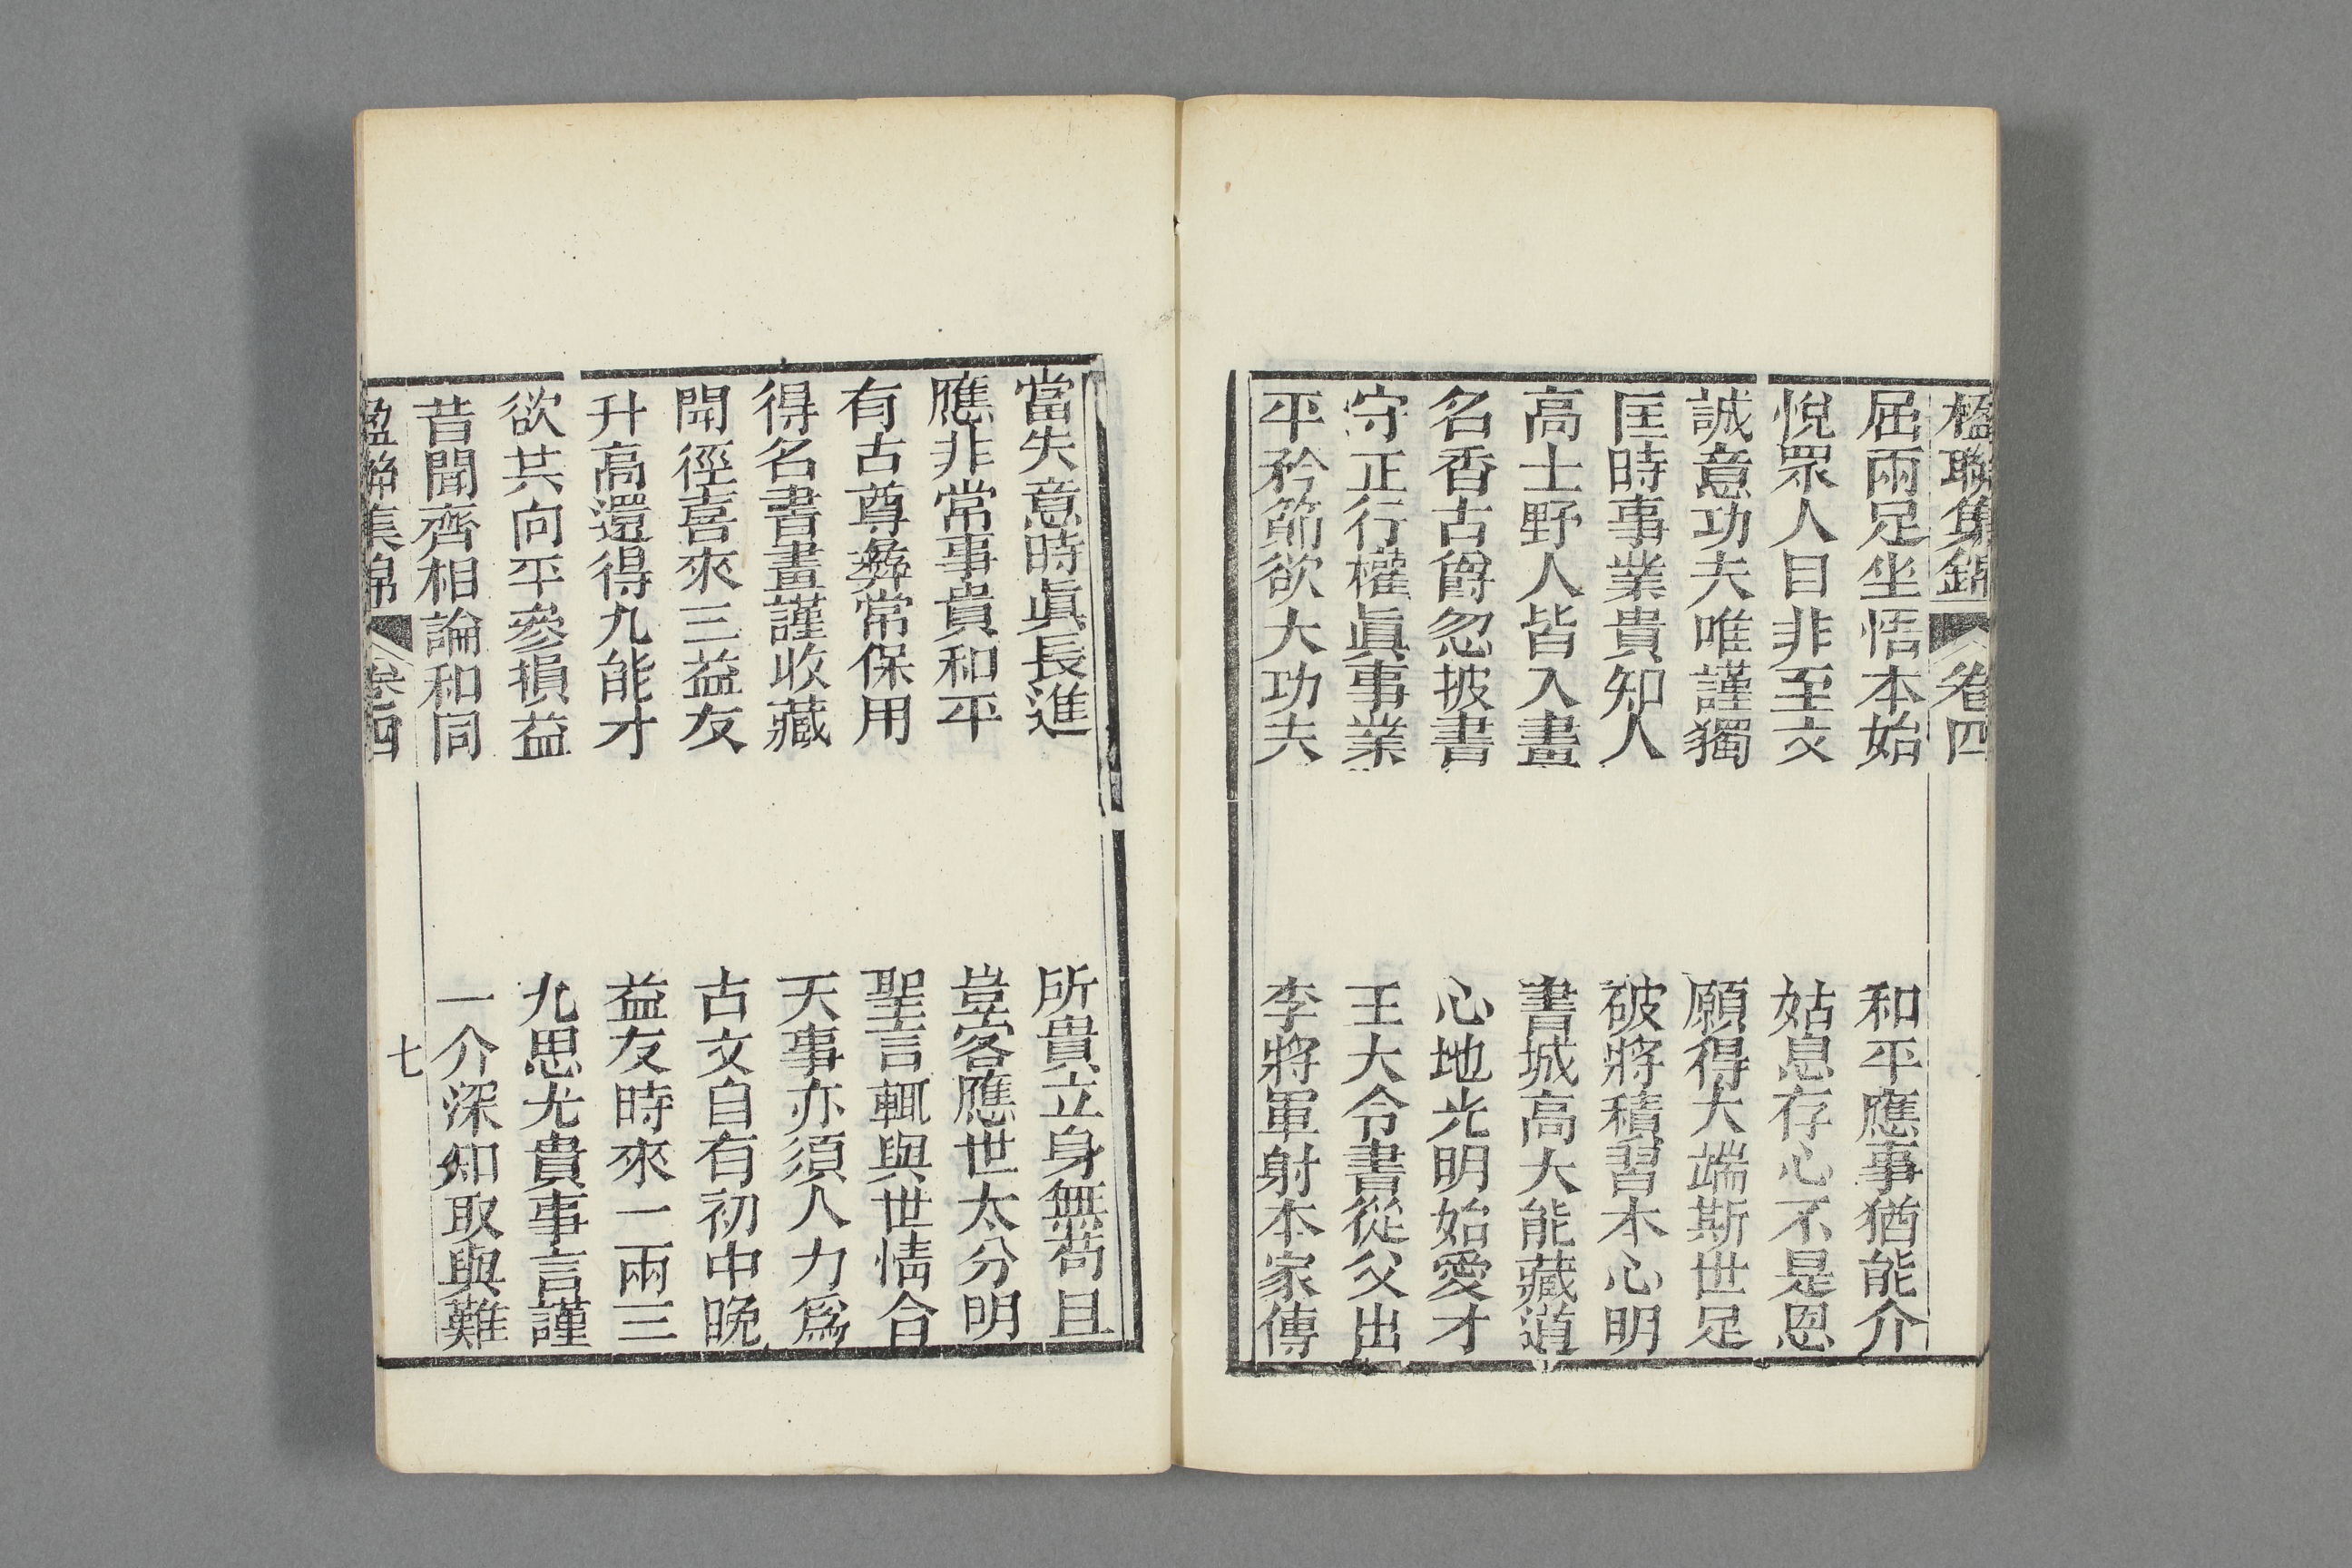 楹聯集錦 卷四
屈兩足坐悟本始 和平應事猶能介
悅眾人目非至文 姑息存心不是恩
誠意功夫唯謹獨 願得大端斯世足
匡時事業貴知人 破將積習本心明
高士野人皆入畫 書城高大能藏道
名香古爵忽披書 心地光明始愛才
守正行權眞事業 王大令書從父出
平矜節欲大功夫 李將軍射本家傳
當失意時眞長進 所貴立身無苟且
應非常事貴和平 豈容應世太分明
有古尊彝常保用 聖言輒與世情合
得名書畫謹收藏 天事亦須人力爲
開徑喜來三益友 古文自有初中晚
升高還得九能才 益友時來一兩三
欲共向平參損益 九思尤貴事言謹
昔聞齊相論和同 一介深知取與難
楹聯集錦 卷四 七